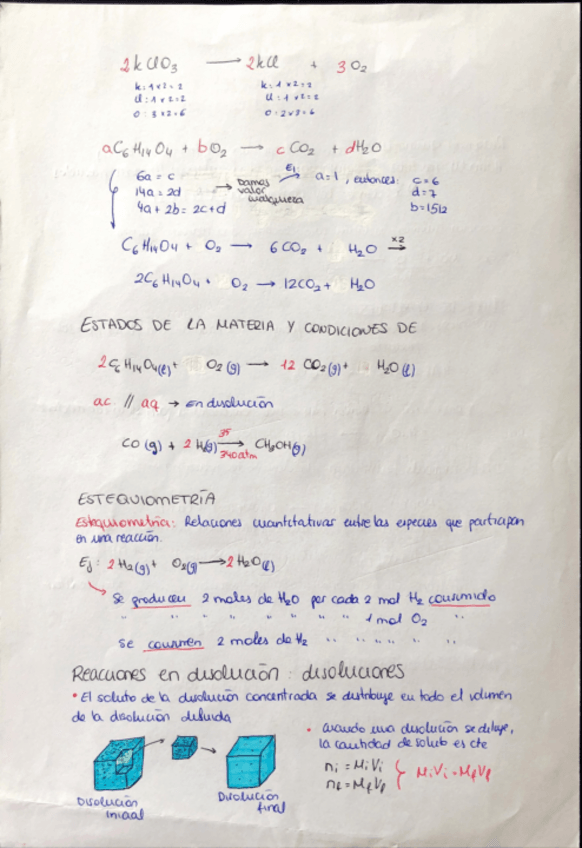 2KClO₃ ⟶ 2KCl + 3O₂
K: 1x2=2 K: 1x2=2
Cl: 1x2=2 Cl: 1x2=2
O: 3x2=6 O: 2x3=6
aC₆H₁₄O₄ + bO₂ ⟶ cCO₂ + dH₂O
6a = c
14a = 2d
4a + 2b = 2c+d
→ Damos valor cualquiera
Ej
a=1, entonces: c=6
d=7
b=15/2
C₆H₁₄O₄ + O₂ ⟶ 6CO₂ + H₂O x2
2C₆H₁₄O₄ + O₂ → 12CO₂ + H₂O
ESTADOS DE LA MATERIA Y CONDICIONES DE
2C₆H₁₄O₄(l) + O₂(g) ⟶ 12 CO₂(g) + H₂O(l)
ac // aq → en disolución
CO(g) + 2H(g) ⟶ CH₃OH(g)
340atm
ESTEQUIOMETRÍA
Estequiometría: Relaciones cuantitativas entre las especies que participan
en una reacción.
Ej: 2H₂(g) + O₂(g) ⟶ 2H₂O(l)
Se producen 2 moles de H₂O por cada 2 mol H₂ consumido
" " " " " " " 1 mol O₂ "
Se consumen 2 moles de H₂ " " " " "
Reacciones en disolución: disoluciones
• El soluto de la disolución concentrada se distribuye en todo el volumen
de la disolución diluida
• cuando una disolución se diluye,
la cantidad de soluto es cte
nᵢ = MᵢVᵢ
n_f = M_fV_f
MᵢVᵢ = M_fV_f
Disolución
inicial
Disolución
final